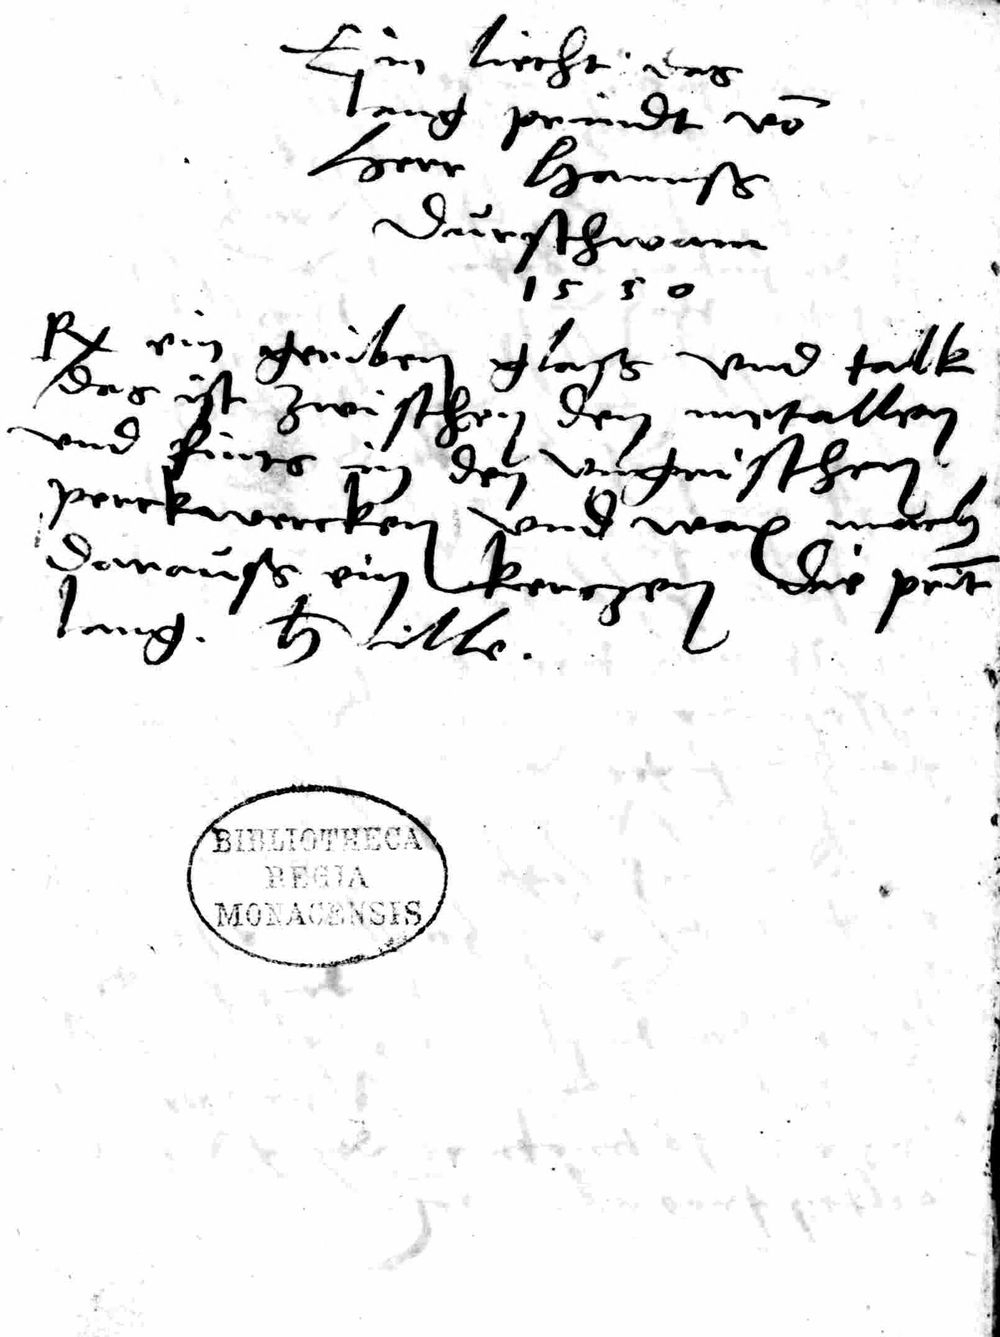 Ein liecht das
lang prindt vō
Herr Hannss
Dürschwam
1550
Rx ein geriben glass vnd talk
das ist zwischen den metallen
vnd fints in den vngrischen
perckwercken vnd wax mach
darauss ein kerczen die print
lang. H
BIBLIOTHECA
REGIA
MONACENSIS